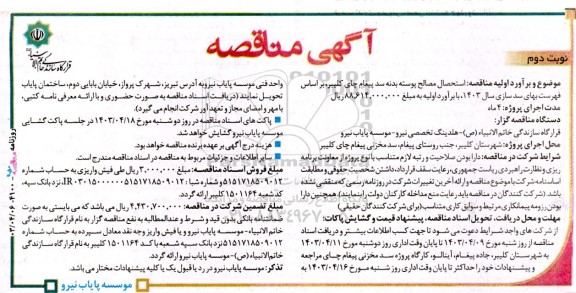 آگهی مناقصه
نوبت دوم
قرارگاه سازندگی خاتم الانبیاء
موضوع و برآورد اولیه مناقصه: استحصال مصالح پوسته بدنه سد پیغام چای کلیبر، بر اساس
فهرست بهای سد سازی سال ۱۴۰۳، با برآورد اولیه به مبلغ ۸۸,۶۱۴,۰۰۰,۰۰۰ ریال.
مدت اجرای پروژه: ۴ ماه
دستگاه مناقصه گزار:
قرارگاه سازندگی خاتم الانبیاء (ص) - هلدینگ تخصصی نیرو - موسسه پایاب نیرو
محل اجرای پروژه: شهرستان کلیبر، جنب روستای پیغام، سد مخزنی پیغام چای کلیبر
شرایط شرکت در مناقصه: دارا بودن صلاحیت و رتبه لازم متناسب با نوع پروژه از معاونت برنامه
ریزی و نظارت راهبردی ریاست جمهوری، رعایت سقف قرارداد، داشتن شخصیت حقوقی و مطابقت
اساسنامه شرکت با موضوع مناقصه و ارائه آخرین تغییرات شرکت در روزنامه رسمی که منقضی نشده
باشد. (شرکت کنندگان در مناقصه باید رعایت منع مداخله کارکنان دولت را بنمایند) و همچنین دارا
بودن رزومه پیمانکاری مرتبط و سوابق کاری متناسب (برای شرکت کنندگان حقیقی)
مهلت و محل دریافت، تحویل اسناد مناقصه، پیشنهاد قیمت و گشایش پاکات:
از شرکت های واجد شرایط دعوت می شود تا جهت کسب اطلاعات بیشتر و دریافت اسناد
مناقصه از روز شنبه مورخ ۱۴۰۳/۰۴/۰۹ تا پایان وقت اداری روز دوشنبه مورخ ۱۴۰۳/۰۴/۱۱
به شهرستان کلیبر، جاده پیغام، آینالو، کارگاه پروژه سد مخزنی پیغام چای مراجعه
و پیشنهادات خود را حداکثر تا پایان وقت اداری روز شنبه مورخ ۱۴۰۳/۰۴/۱۶ به
واحد فنی موسسه پایاب نیرو به آدرس تبریز، شهرک پرواز، خیابان بابایی دوم، ساختمان پایاب
تحویل نمایند (دریافت اسناد مناقصه به صورت حضوری و با ارائه معرفی نامه کتبی،
با مهر و امضای مجاز و تعهد آور شرکت انجام می گیرد).
پاکت های اسناد مناقصه در روز دوشنبه مورخ ۱۴۰۳/۰۴/۱۸ در جلسه پاکت گشایی
موسسه پایاب نیرو گشایش خواهد شد.
هزینه درج آگهی بر عهده برنده مناقصه خواهد بود.
سایر اطلاعات و جزئیات مربوط به مناقصه در اسناد مناقصه مندرج است.
مبلغ فروش اسناد مناقصه: مبلغ ۳,۰۰۰,۰۰۰ ریال طی فیش واریزی به حساب شماره
کد شعبه ۱۵۰۱۱۶۴ کلیبر ارائه گردد.
مبلغ تضمین شرکت در مناقصه: ۴,۴۳۰,۷۰۰,۰۰۰ ریال می باشد که می بایستی به صورت
ضمانت نامه بانکی بدون قید و شرط و عندالمطالبه به نفع مناقصه گزار به نام قرارگاه سازندگی
خاتم الانبیاء - موسسه پایاب نیرو و یا فیش واریز وجه نقد معادل سپرده به حساب شماره
۵۱۵۱۷۱۸۵۰۹۰۱۲ نزد بانک سپه شعبه با کد ۱۵۰۱۱۶۴ کلیبر به نام قرارگاه سازندگی
خاتم الانبیاء (ص) - موسسه پایاب نیرو ارائه گردد.
تذکر: موسسه پایاب نیرو در رد یا قبول یک یا کلیه پیشنهادات مختار می باشد.
موسسه پایاب نیرو